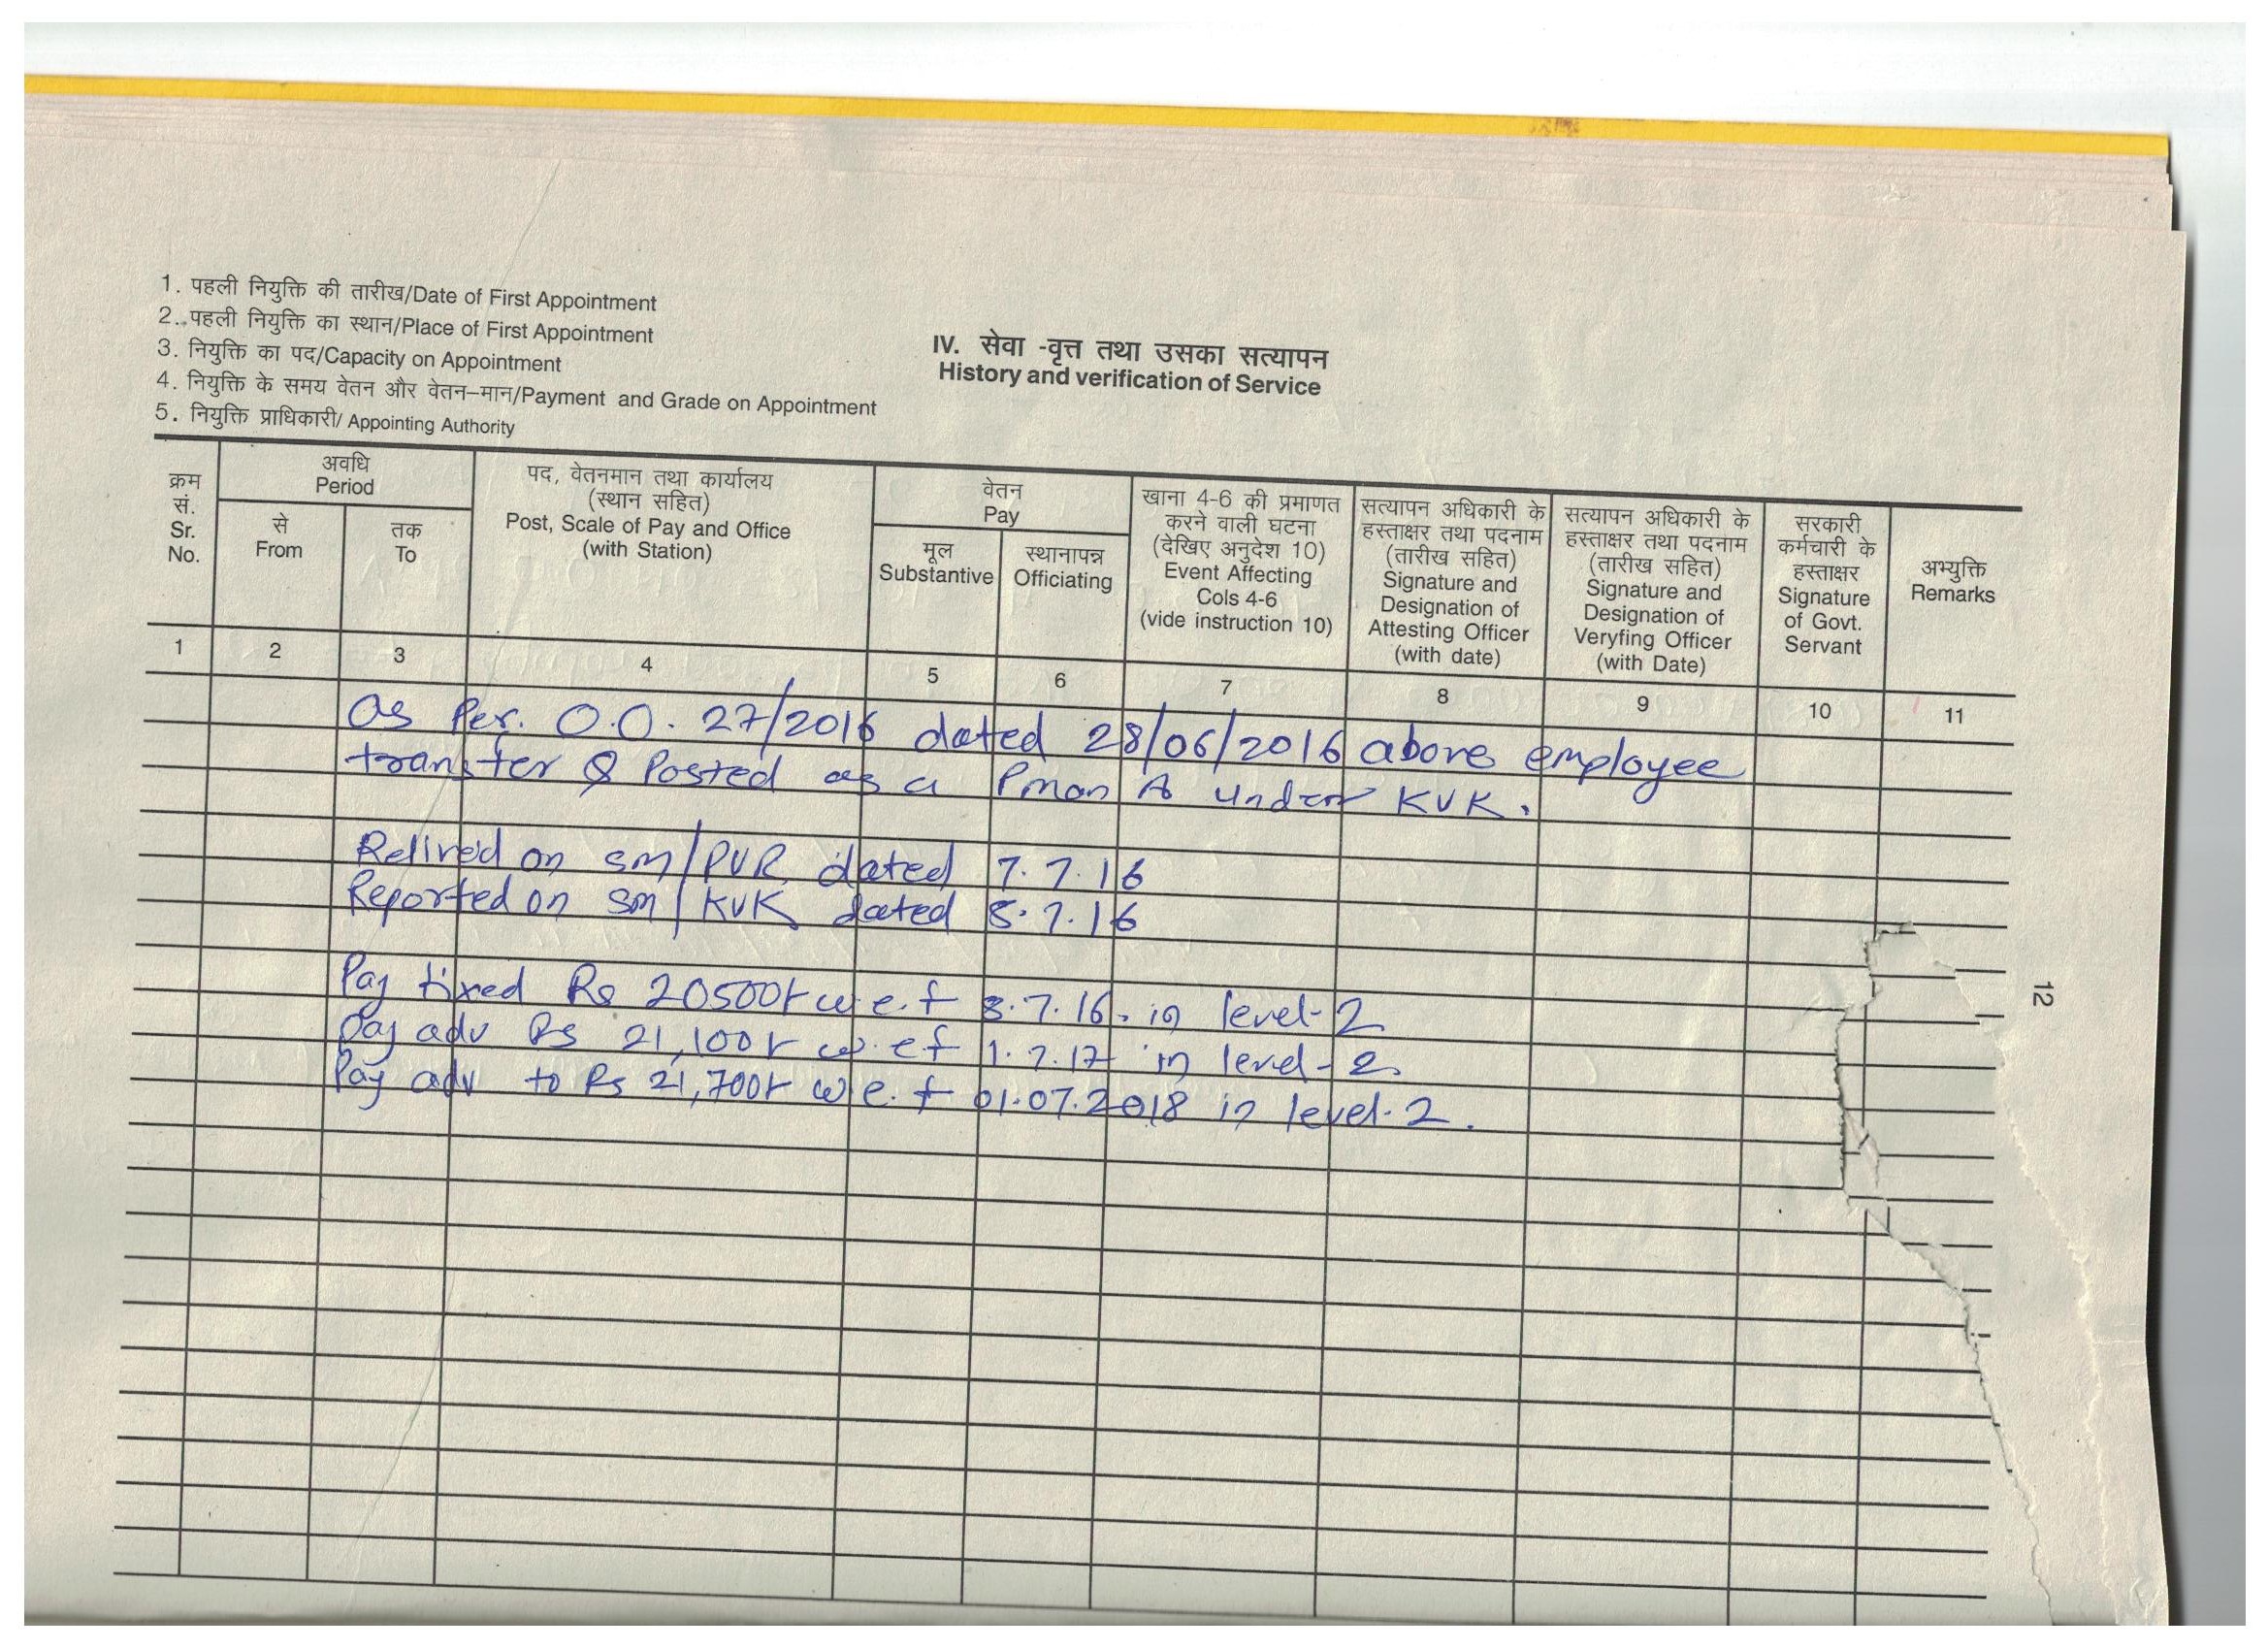 1. पहली नियुक्ति की तारीख/Date of First Appointment
2. पहली नियुक्ति का स्थान/Place of First Appointment
3. नियुक्ति का पद/Capacity on Appointment
4. नियुक्ति के समय वेतन और वेतन–मान/Payment and Grade on Appointment
5. नियुक्ति प्राधिकारी/ Appointing Authority
IV. सेवा -वृत्त तथा उसका सत्यापन
History and verification of Service
क्रम
सं.
Sr.
No.
अवधि
Period
से
From
तक
To
पद, वेतनमान तथा कार्यालय
(स्थान सहित)
Post, Scale of Pay and Office
(with Station)
वेतन
Pay
मूल
Substantive
स्थानापन्न
Officiating
खाना 4-6 की प्रमाणत
करने वाली घटना
(देखिए अनुदेश 10)
Event Affecting
Cols 4-6
(vide instruction 10)
सत्यापन अधिकारी के
हस्ताक्षर तथा पदनाम
(तारीख सहित)
Signature and
Designation of
Attesting Officer
(with date)
सत्यापन अधिकारी के
हस्ताक्षर तथा पदनाम
(तारीख सहित)
Signature and
Designation of
Veryfing Officer
(with Date)
सरकारी
कर्मचारी के
हस्ताक्षर
Signature
of Govt.
Servant
अभ्युक्ति
Remarks
1 2 3 4 5 6 7 8 9 10 11
As Per. O.O. 27/2016 dated 28/06/2016 above employee
transfer & Posted as a Pman A under KVK.
Relived on SM/PVR dated 7.7.16
Reported on SM/KVK dated 8.7.16
Pay fixed Rs 20500/- w.e.f 8.7.16. in level-2
Pay adv Rs 21,100/- w.ef 1.7.17 in level-2.
Pay adv to Rs 21,700/- w.e.f 01.07.2018 in level-2.
12